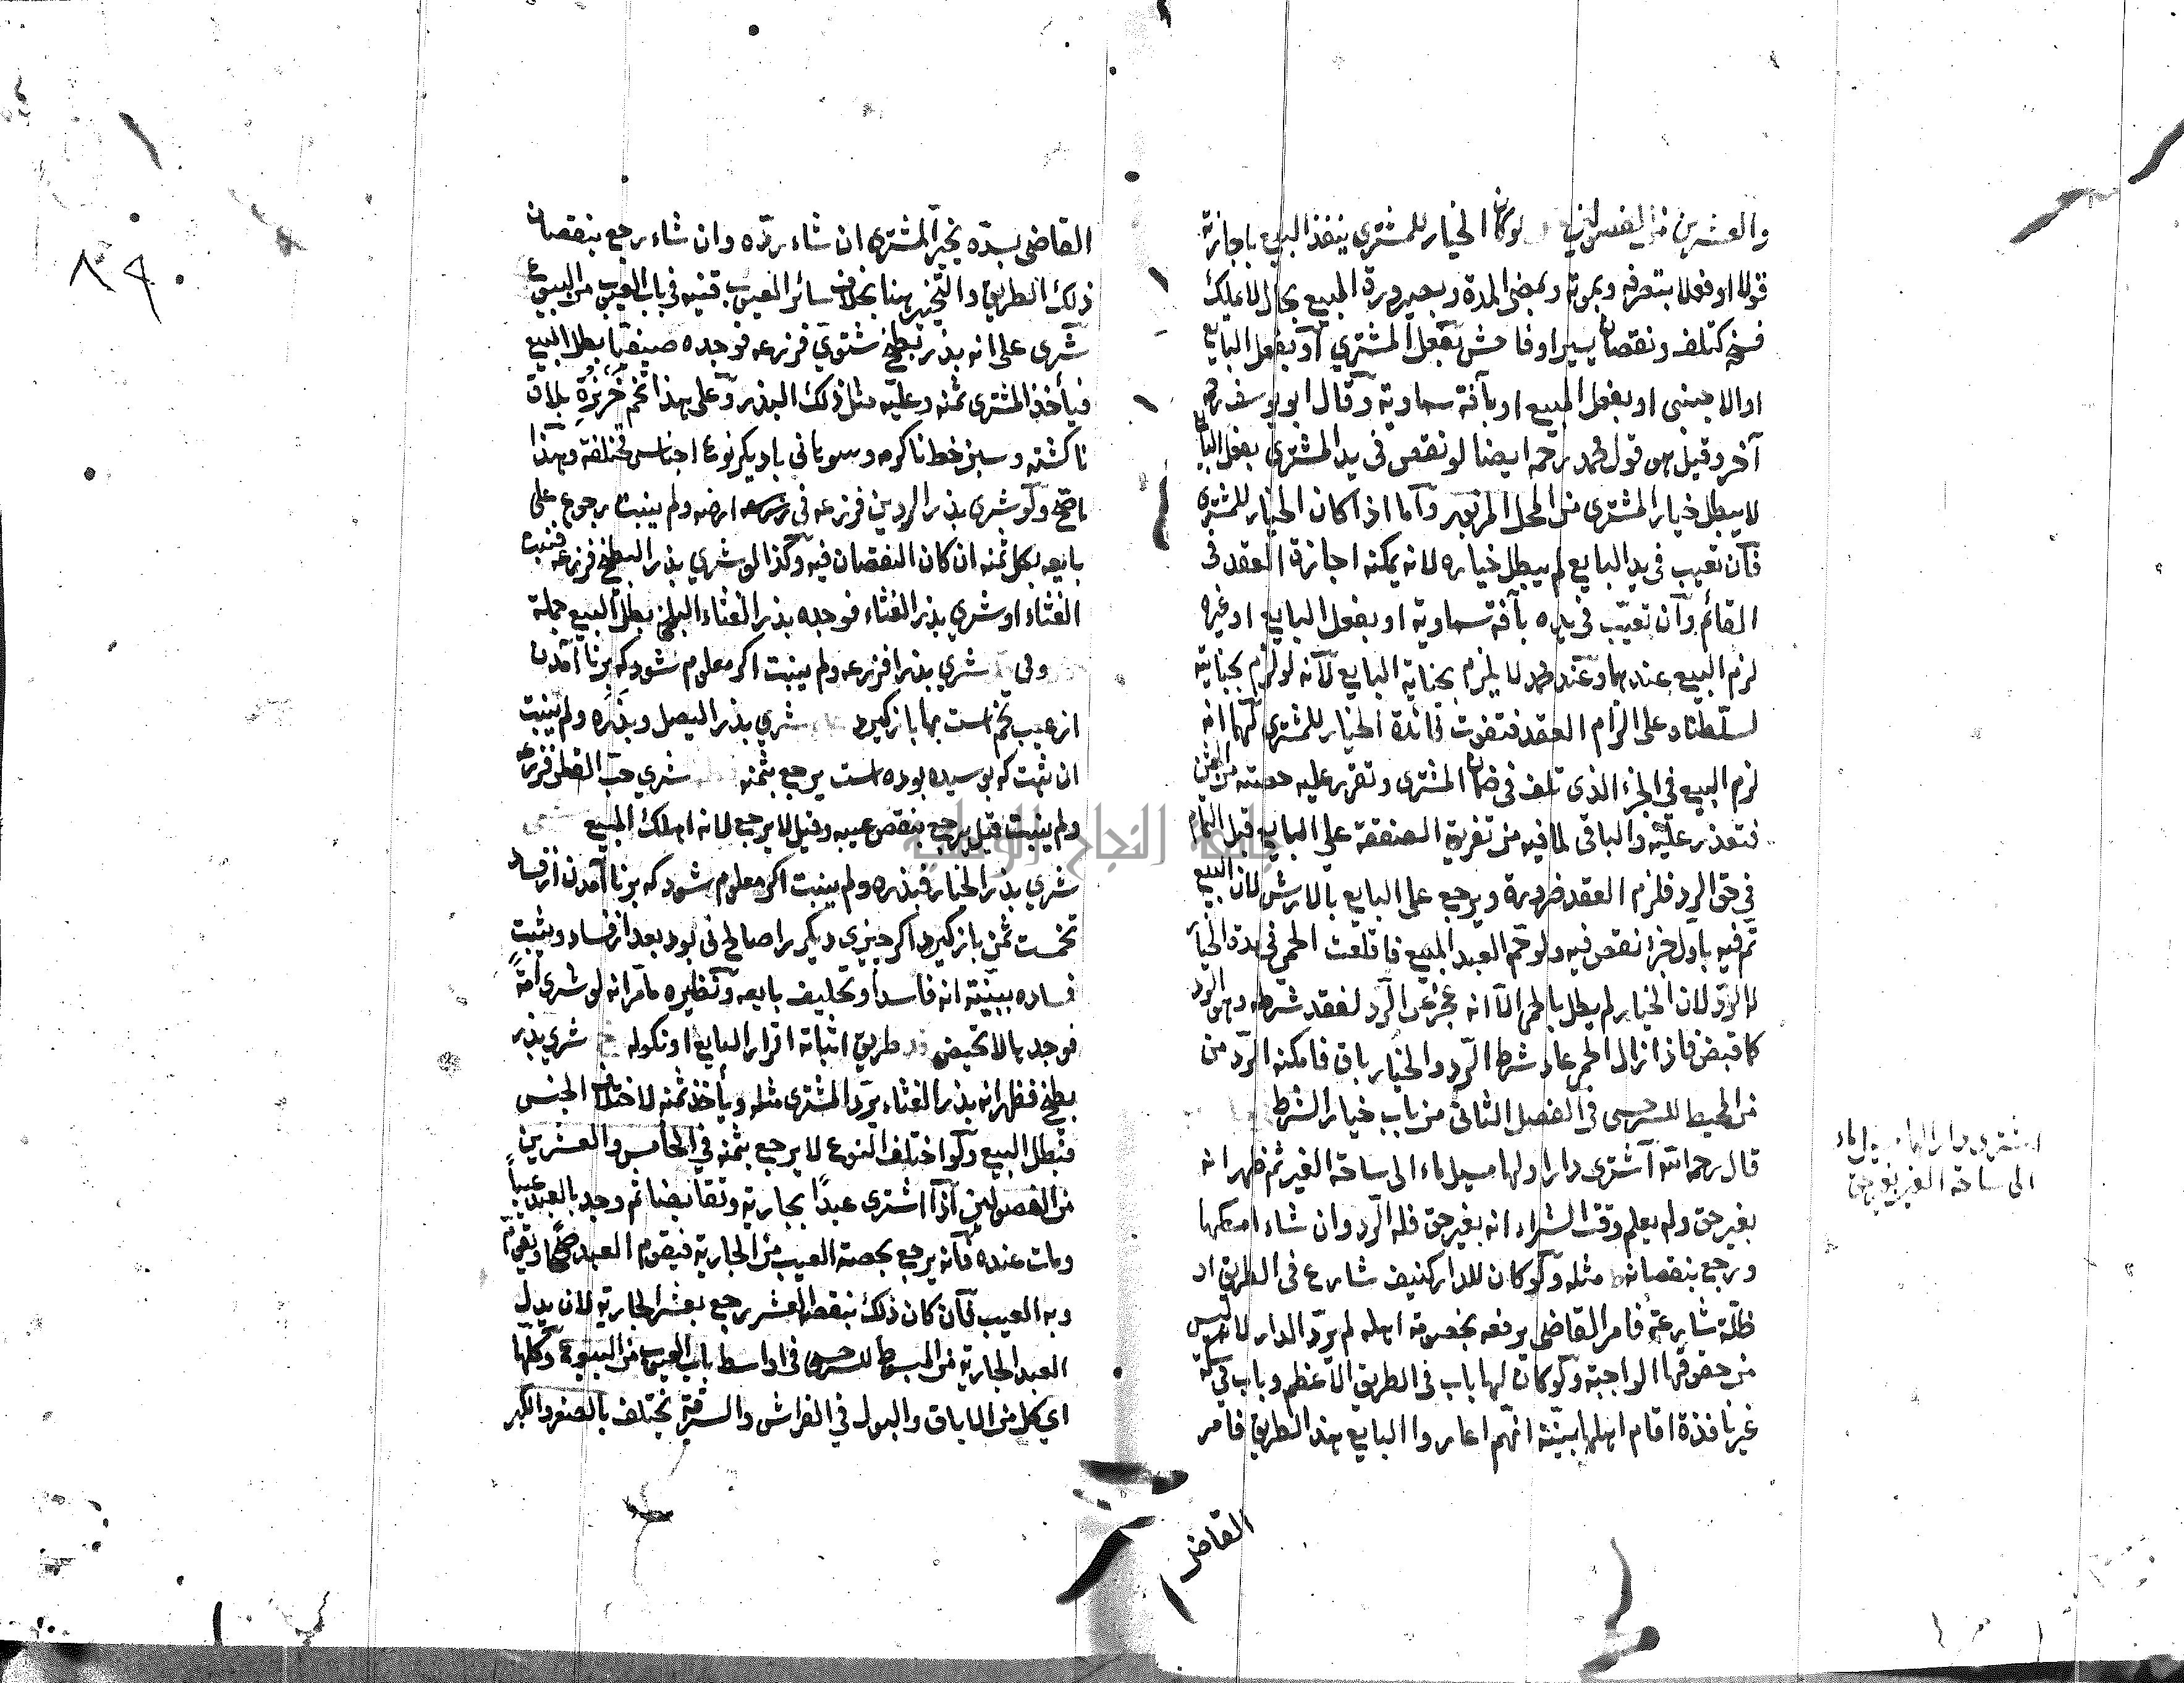 والعشرين من الفصولين لو كان الخيار للمشتري ينفذ البيع باجازته
قولا او فعلا بتصرفه وبموته وبمضي المدة وبصيرورة المبيع بحال لا يملك
فسخه كتلف ونقصان يسير او فاحش بفعل المشتري او بفعل البايع
او الاجنبي او بفعل المبيع او بآفة سماوية وقال ابو يوسف رحمه
آخر وقيل هو قول محمد رحمه ايضا لو نقص في يد المشتري بفعل البايع
لا يبطل خيار المشتري من المحل المزبور واما اذا كان الخيار للمشتري
فان تعيب في يد البايع لم يبطل خياره لانه يمكنه اجازة العقد في
القائم وان تعيّب في يده بآفة سماوية او بفعل البايع او غيره
لزم البيع عندهما وعند محمد لا يلزم بجناية البايع لانه لو لزم بجنايته
لسلطناه على الزام العقد فتفوت فائدة الخيار للمشتري لهما انه
لزم البيع في الجزء الذي تلف في ضمان المشتري وتقرر عليه حصته من الثمن
فتعذر عليه والباقي لما فيه من تفريق الصفقة على البايع قبل التمام
في حق الرد فلزم العقد ضرورة ويرجع على البايع بالارش لان البيع
تم فيه باول جزء نقص فيه ولو حم العبد المبيع فاقلعت الحمى في مدة الخيار
له الرد لان الخيار لم يبطل بالحمى الا انه عجز عن الرد لفقد شرطه وهو الرد
كما قبض فاذا زال الحمى عاد شرط الرد والخيار باق فامكنه الرد من
من المحيط للسرخسي في الفصل الثاني من باب خيار الشرط
قال رحمه الله اشترى دارا ولها مسيل ماء الى ساحة الغير ثم ظهر انه
بغير حق ولم يعلم وقت الشراء انه بغير حق فله الرد وان شاء امسكها
ورجع بنقصانه مثله ولو كان للدار كنيف شارع في الطريق او
ظلة شارعة فامر القاضي برفعه بخصومة اهله لم يرد الدار لانه ليس
من حقوقها الواجبة ولو كان لها باب في الطريق الاعظم وباب في سكة
غير نافذة اقام اهلها بينة انهم اعاروا البايع هذا الطريق فامر
القاضي
اشترى دارا لها مسيل ماء
الى ساحة الغير بغير حق
٨٩
القاضي بسده يخير المشتري ان شاء رده وان شاء رجع بنقصان
ذلك الطريق والتخيير هنا بخلاف سائر العيوب قنيه في باب العيوب من البيوع
شرى على انه بذر بطيخ شتوي فزرعه فوجده صيفيا بطل البيع
فيأخذ المشتري ثمنه وعليه مثل ذلك البذر وعلى هذا تخم خربزه
ناكشته وسبز خط ناكرمه وسوتاني باديكر نوعا اجناس مختلفة وهذا
ناصح ولو شرى بذر فزرعه في ارضه ولم ينبت يرجع على
بايعه بكل ثمنه ان كان النقصان فيه وكذا لو شرى بذر البطيخ فزرعه فنبت
القثاء او شرى بذر القثاء فوجده بذر القثاء البلخي بطل البيع جملة
وفي شرى بذرا فزرعه ولم ينبت اكر معلوم شود كه برنا آمدن
از عيب تخم است بها باز كيرد شرى بذر البصل وبذره ولم ينبت
ان ثبت كه بوسيده بوده است يرجع بثمنه شرى حب القطن فزرعه
ولم ينبت قيل يرجع بنقص عيبه وقيل لا يرجع لانه اهلك المبيع
شرى بذر الخيار فبذره ولم ينبت اكر معلوم شود كه برنا آمدن از فساد
تخمست ثمن باز كيرد اكر چيزي ديكر را صالح ني بود بعد از فساد ويثبت
فساده ببينته انه فاسد او تحليف بايعه ونظيره ما مر انه لو شرى امة
فوجدها لا تحيض طريق اثباته اقرار البايع او نكوله شرى بذر
بطيخ فظهر انه بذر القثاء يرد المشتري مثله ويأخذ ثمنه لاختلاف الجنس
فبطل البيع ولو اختلف النوع لا يرجع بثمنه في الخامس والعشرين
من الفصولين اذا اشترى عبدا بجارية وتقابضا ثم وجد بالعبد عيبا
ومات عنده فانه يرجع بحصته العيب من الجارية فيقوم العبد صحيحا ويقوم
وبه العيب فان كان ذلك ينقص العشر رجع بعشر الجارية لان بدل
العبد الجارية من المبسوط للسرخسي في اواسط باب العيوب من البيوع وكلها
اي كل من الاباق والبول في الفراش والسرقة تختلف بالصغر والكبر